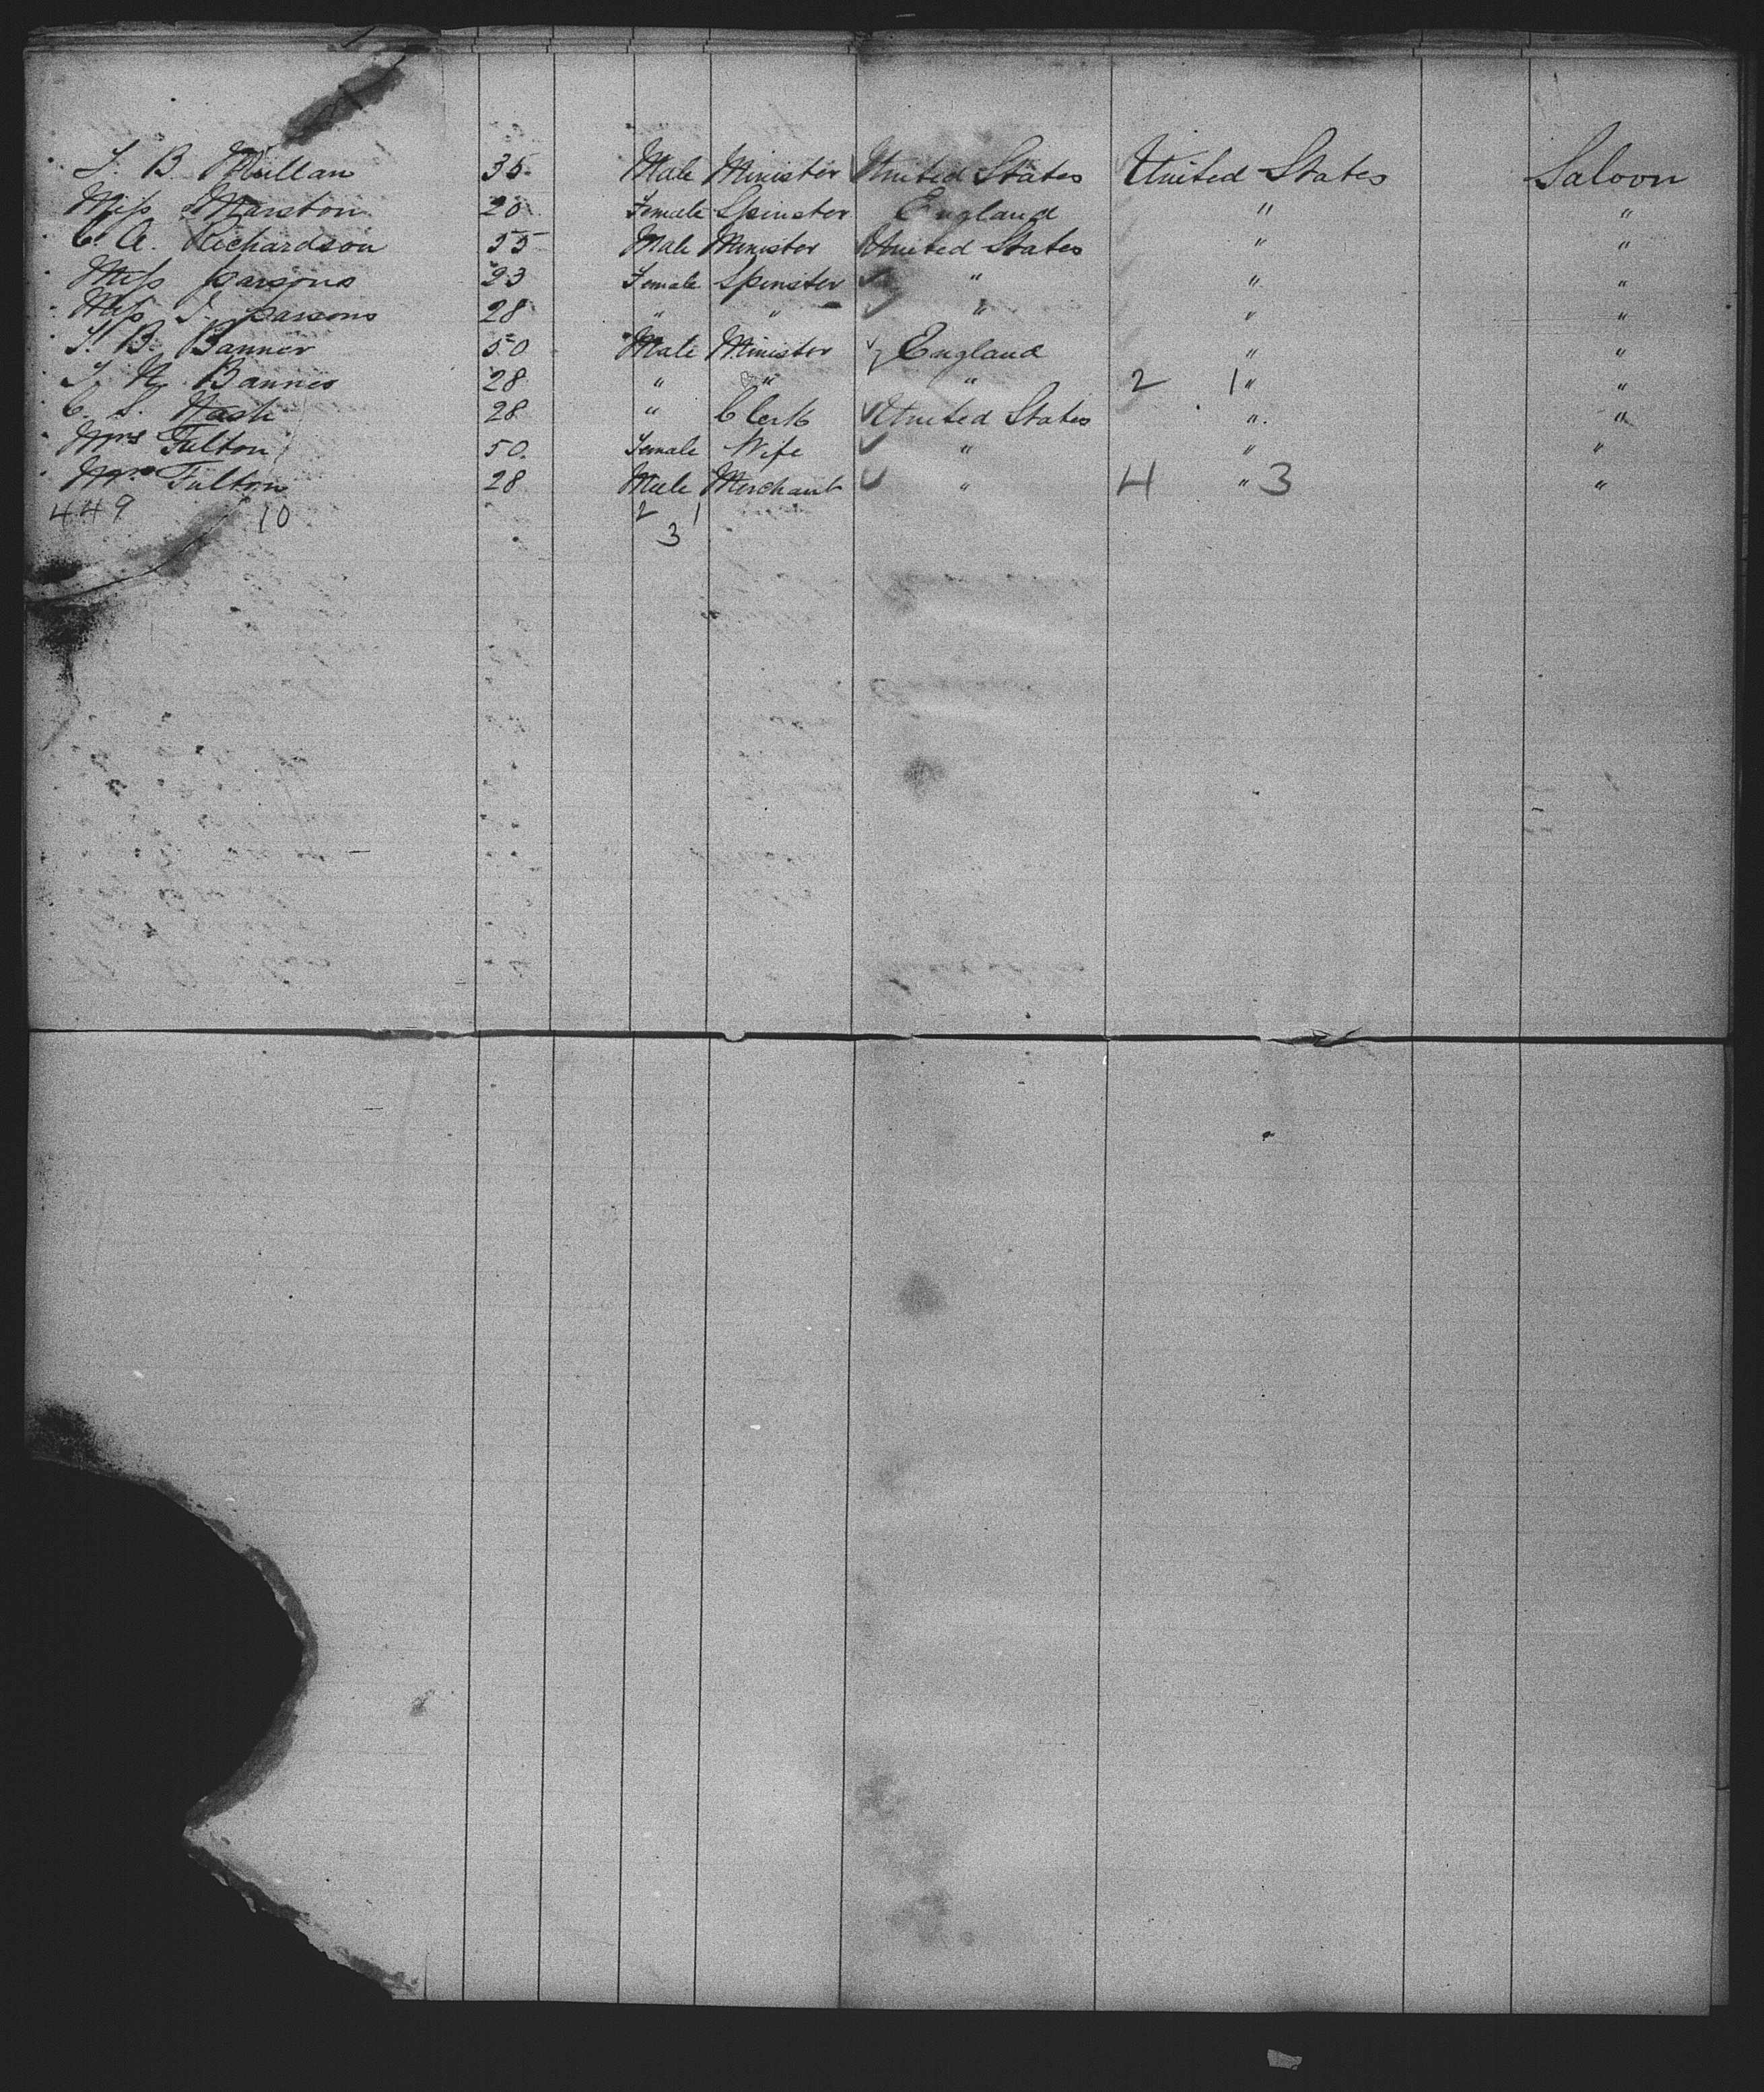 S. B. Mullan 35 Male Minister United States United States Saloon
Miss Marston 20 Female Spinster England " "
C. A. Richardson 55 Male Minister United States " "
Miss Parsons 23 Female Spinster " " "
Miss J. Parsons 28 " " " " "
S. B. Banner 50 Male Minister England " "
S. H. Banner 28 " " " 2 1 " "
C. S. Nash 28 " Clerk United States " "
Mrs Fulton 50 Female Wife " " "
Mr Fulton 28 Male Merchant " 4 " 3 "
449 10 2 1
3